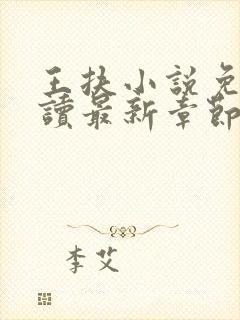 王扶小說免
讀最新章節
李艾